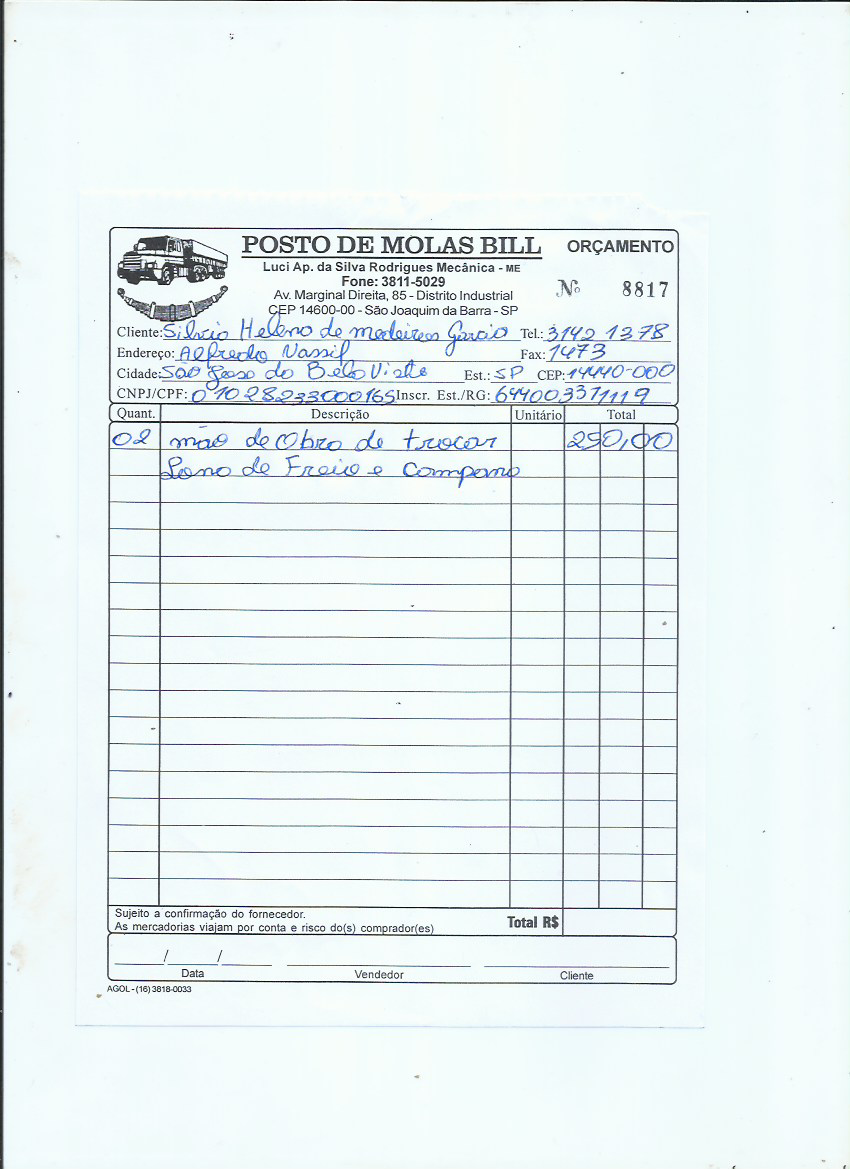 POSTO DE MOLAS BILL ORÇAMENTO
Luci Ap. da Silva Rodrigues Mecânica - ME
Fone: 3811-5029
Nº 8817
Av. Marginal Direita, 85 - Distrito Industrial
CEP 14600-00 - São Joaquim da Barra - SP
Cliente: Silvio Heleno de medeiros Garcia Tel.: 3142 1378
Endereço: Alfredo Nassif Fax: 1473
Cidade: São Jose da Bela Vista Est.: SP CEP: 14440-000
CNPJ/CPF: 01028233000165 Inscr. Est./RG: 644003371119
Quant. Descrição Unitário Total
02 mão de Obra de trocar 250,00
Lona de Freio e Campana
Sujeito a confirmação do fornecedor.
As mercadorias viajam por conta e risco do(s) comprador(es) Total R$
____/____/____
Data Vendedor Cliente
AGOL - (16) 3818-0033